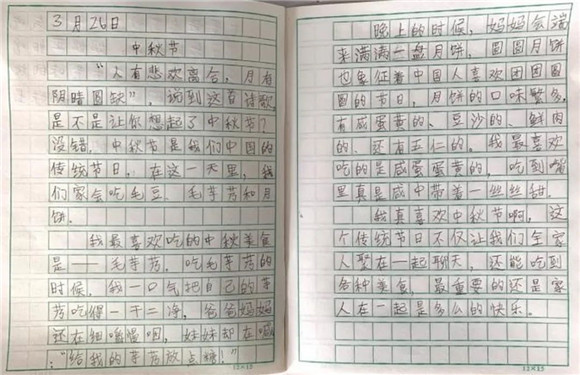 3月26日
中秋节
“人有悲欢离合，月有
阴晴圆缺”，说到这首诗歌
是不是让你想起了中秋节？
没错，中秋节是我们中国的
传统节日。在这一天里，我
们家会吃毛豆、毛芋艿和月
饼。
我最喜欢吃的中秋美食
是——毛芋艿，吃毛芋艿的
时候，我一口气把自己的芋
艿吃得一干二净，爸爸妈妈
还在细嚼慢咽，妹妹却在喊
：“给我的芋艿放点糖！”
12×15
晚上的时候，妈妈会端
来满满一盘月饼，圆圆月饼
也象征着中国人喜欢团团圆
圆的节日，月饼的口味繁多，
有咸蛋黄的、豆沙的、鲜肉
的、还有五仁的。我最喜欢
吃的是咸蛋蛋黄的，吃到嘴
里真是咸中带着一丝丝甜。
我真喜欢中秋节啊，这
个传统节日不仅让我们全家
人聚在一起聊天，还能吃到
各种美食，最重要的还是家
人在一起是多么的快乐。
12×15